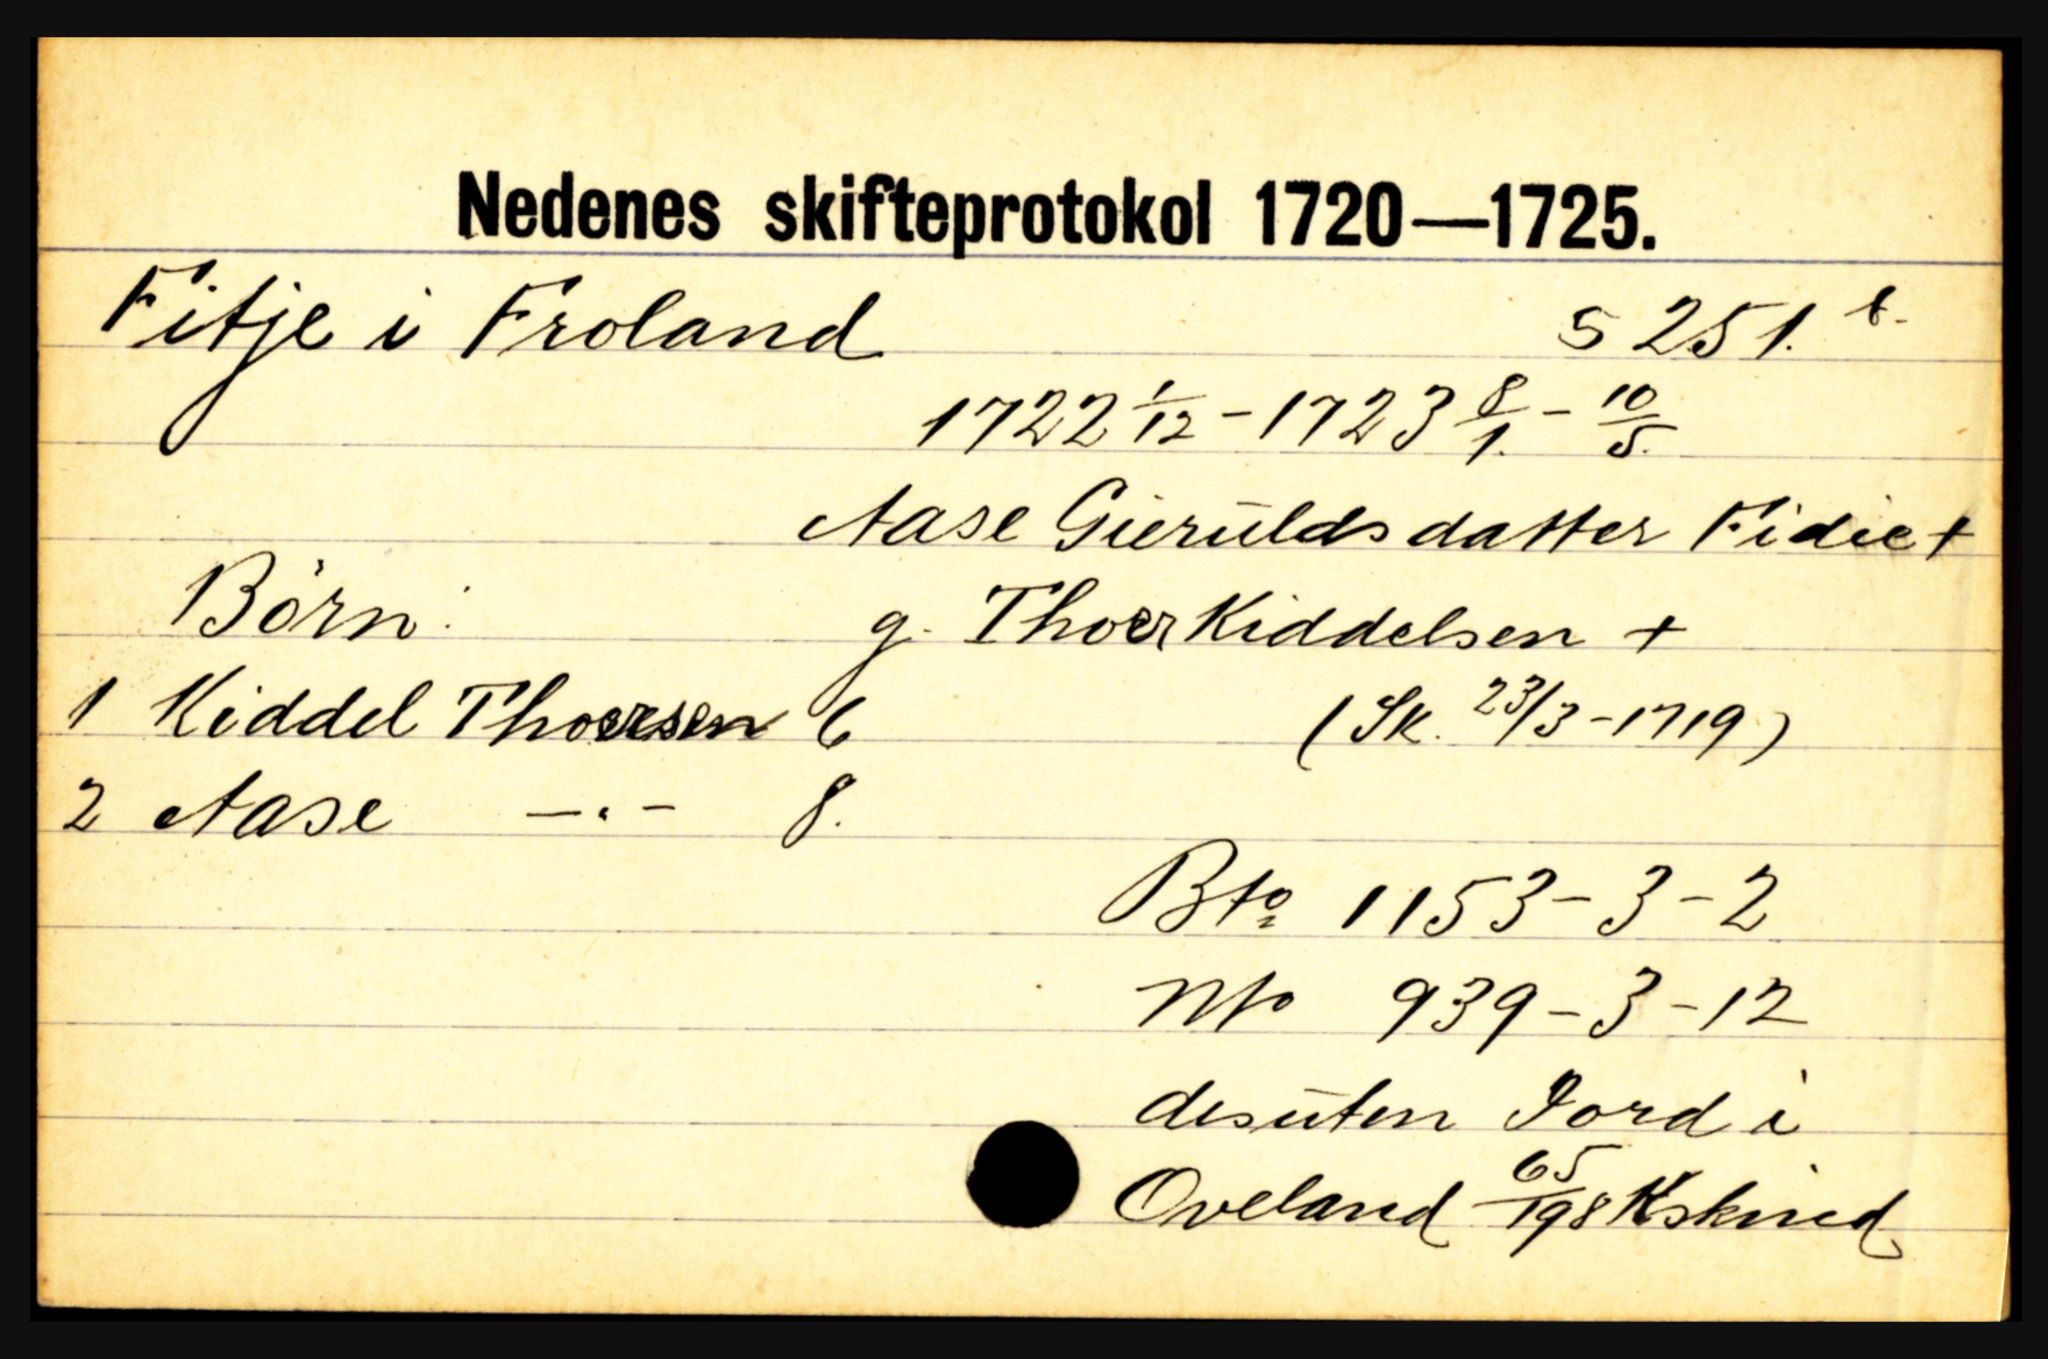 Nedenes skifteprotokol 1720—1725.
Fitje i Froland S 251. b.
1722 1/12 - 1723 8/1. - 10/5.
Aase Gieruldsdatter Fidie +
Börn: g. Thoer Kiddelsen +
1 Kiddel Thoersen 6 (Sk. 23/3 - 1719)
2 Aase —„— 8.
Bto 1153 - 3 - 2
Nto 939 - 3 - 12
desuten Jord i
Oveland 65/198 Kskind